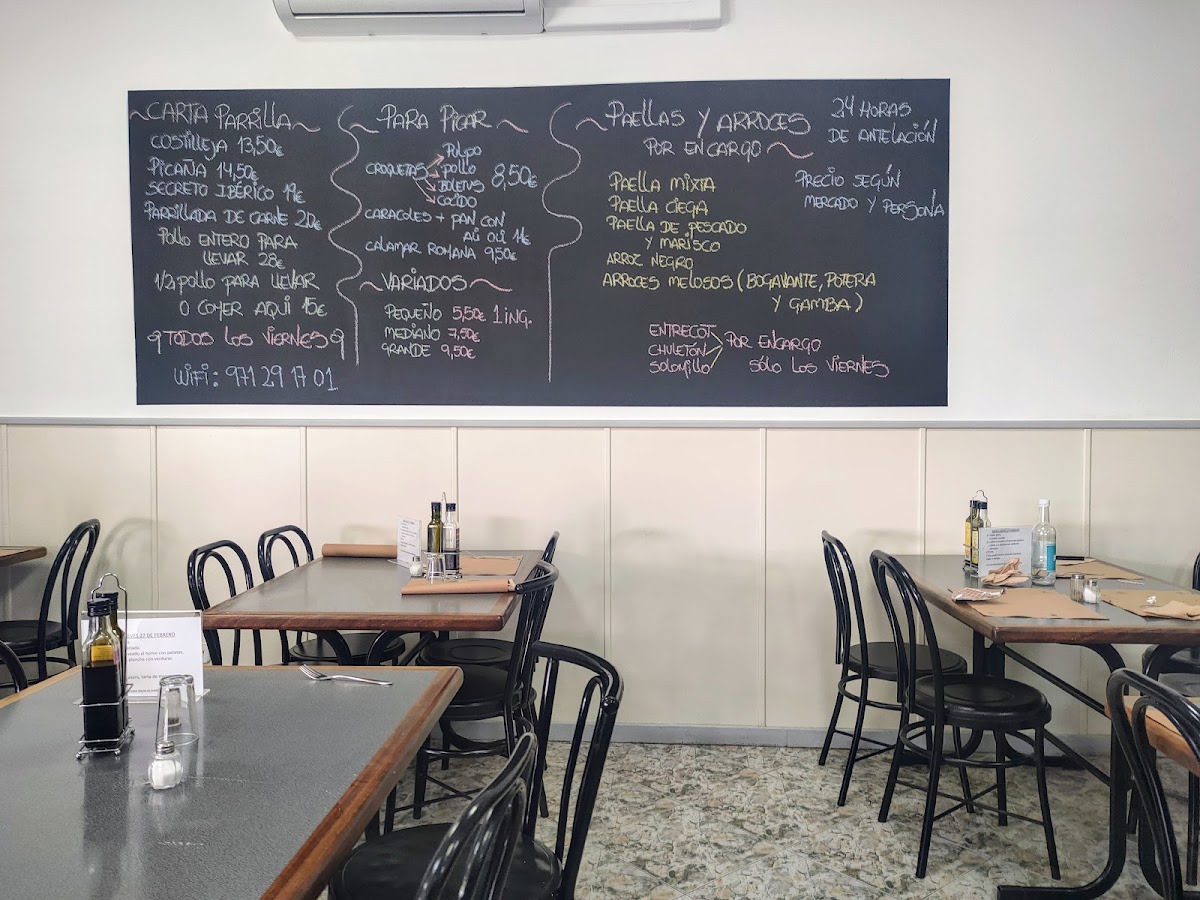 CARTA PARRILLA
COSTILLEJA 13,50€
PICAÑA 14,50€
SECRETO IBÉRICO 19€
PARRILLADA DE CARNE 20€
POLLO ENTERO PARA
LLEVAR 28€
1/2 POLLO PARA LLEVAR
O COMER AQUI 15€
TODOS LOS VIERNES
WIFI: 971 29 17 01
PARA PICAR
CROQUETAS
PULPO
POLLO
BOLETUS
COCIDO
8,50€
CARACOLES + PAN CON
ALI OLI 11€
CALAMAR ROMANA 9,50€
VARIADOS
PEQUEÑO 5,50€ 1 ING.
MEDIANO 7,50€
GRANDE 9,50€
PAELLAS Y ARROCES
POR ENCARGO
24 HORAS
DE ANTELACIÓN
PRECIO SEGÚN
MERCADO Y PERSONA
PAELLA MIXTA
PAELLA CIEGA
PAELLA DE PESCADO
Y MARISCO
ARROZ NEGRO
ARROCES MELOSOS (BOGAVANTE, POTERA
Y GAMBA)
ENTRECOT
CHULETÓN
SOLOMILLO
POR ENCARGO
SÓLO LOS VIERNES
22 DE FEBRERO